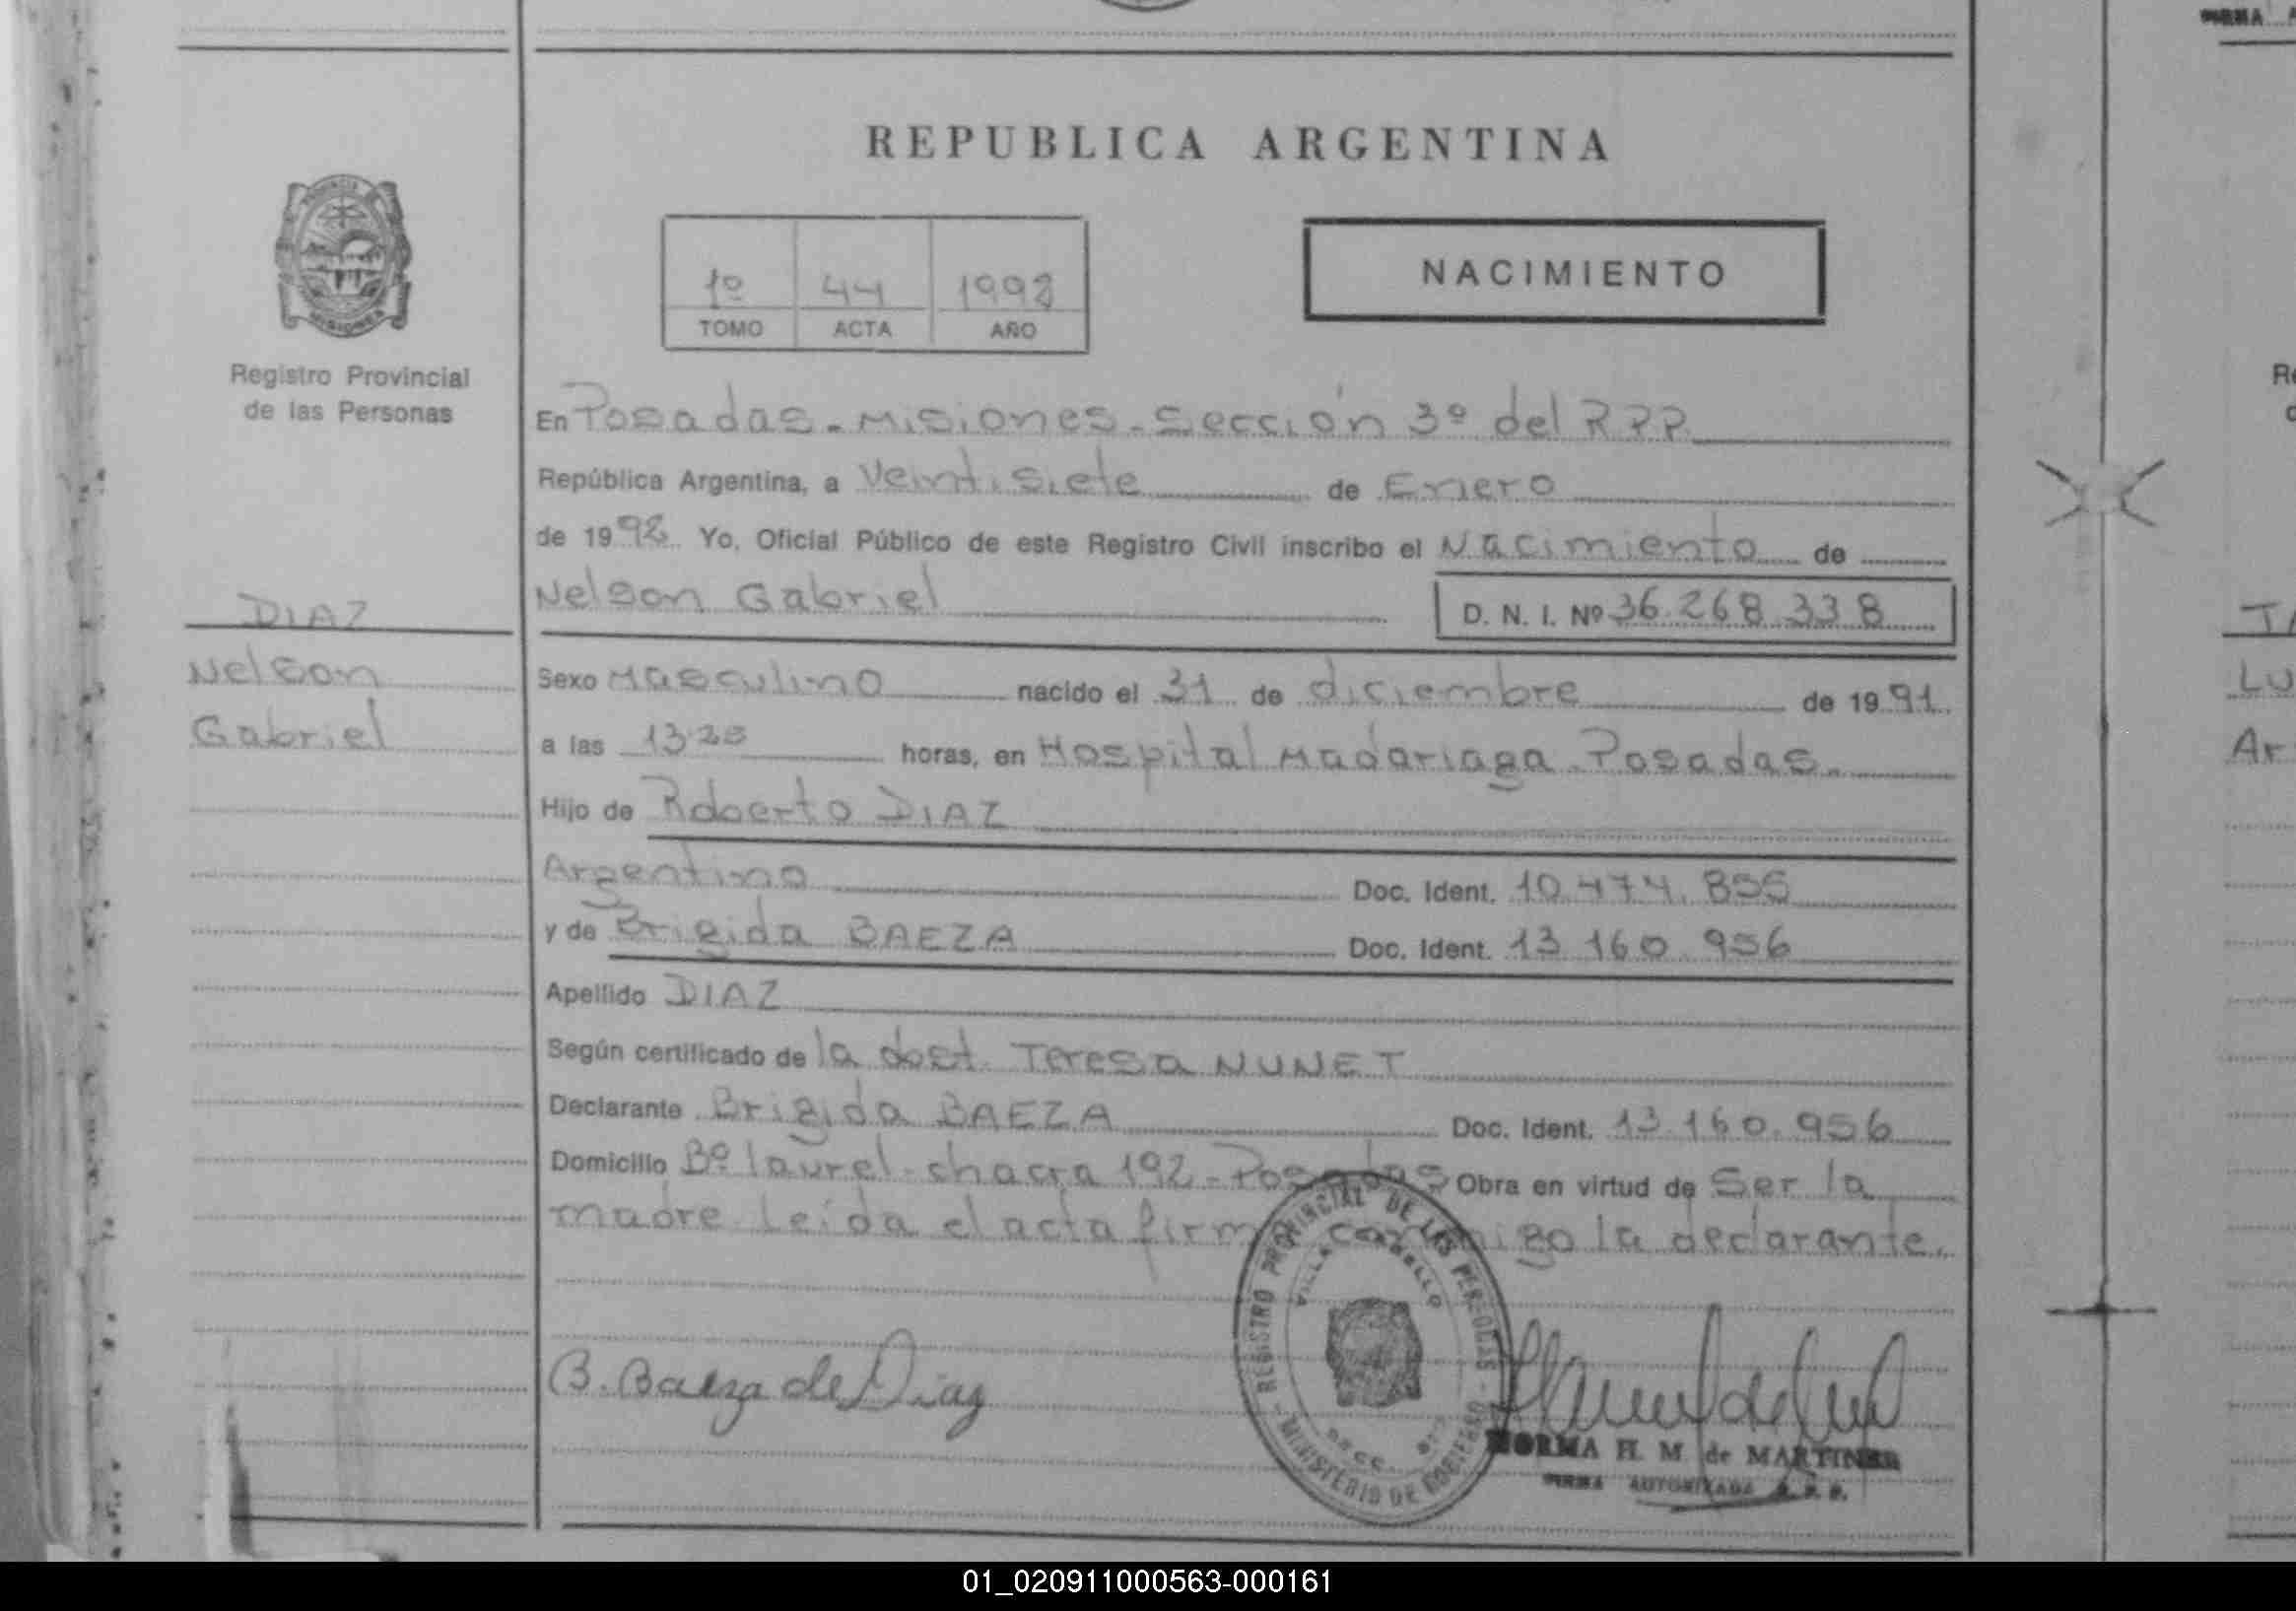 REPUBLICA ARGENTINA
1º 44 1992
TOMO ACTA AÑO
NACIMIENTO
PROVINCIA
MISIONES
Registro Provincial
de las Personas
En Posadas - Misiones - Sección 3º del RPP
República Argentina, a Veintisiete de Enero
de 1992 Yo, Oficial Público de este Registro Civil inscribo el Nacimiento de
Nelson Gabriel D. N. I. Nº 36.268.338
DIAZ
Nelson
Gabriel
Sexo Masculino nacido el 31 de diciembre de 1991
a las 13:25 horas, en Hospital Madariaga - Posadas.
Hijo de Roberto DIAZ
Argentino Doc. Ident. 10.474.855
y de Brigida BAEZA Doc. Ident. 13.160.956
Apellido DIAZ
Según certificado de la doct. Teresa NUNET
Declarante Brigida BAEZA Doc. Ident. 13.160.956
Domicilio Bº laurel - chacra 192 - Posadas Obra en virtud de Ser la
madre. Leída el acta firma conmigo la declarante.
REGISTRO PROVINCIAL DE LAS PERSONAS - MINISTERIO DE GOBIERNO
VILLA CABELLO
B. Baeza de Diaz
NORMA H. M. de MARTINEZ
FIRMA AUTORIZADA R. P. P.
FIRMA
Lu
Ar
01_020911000563-000161